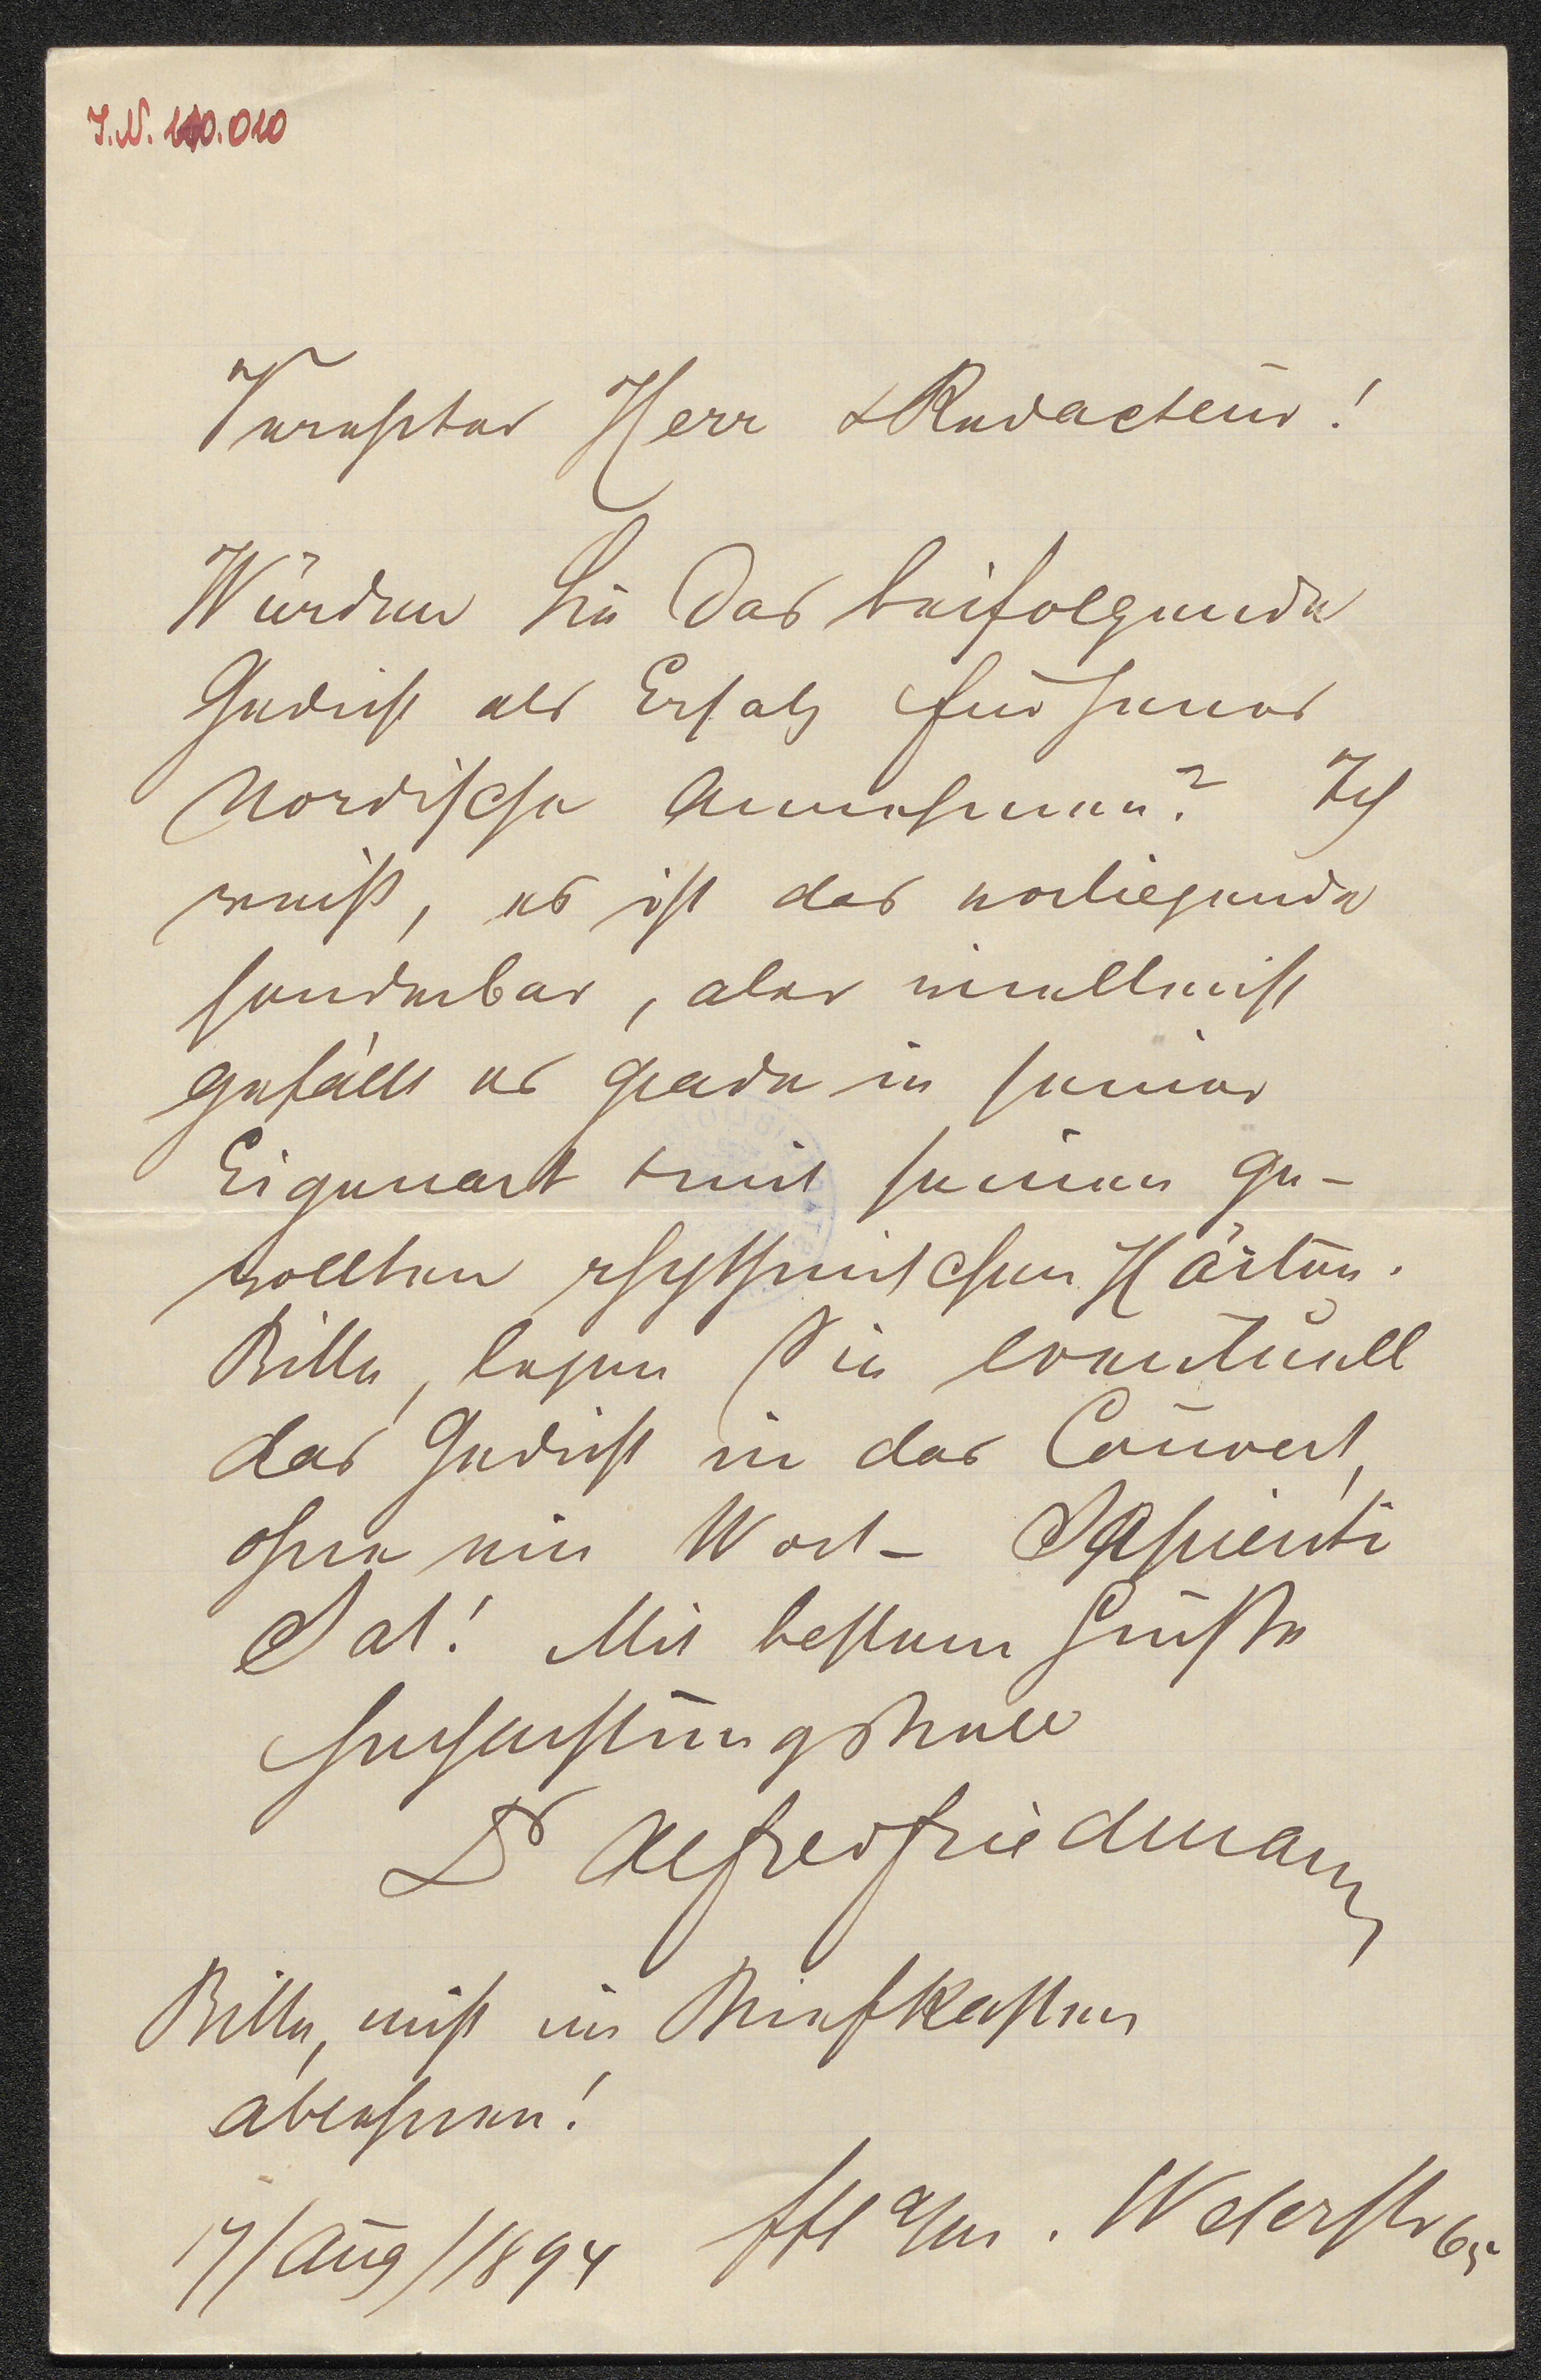 J.N. 110.010
Verehrter Herr Redacteur!
Würden Sie das beifolgende
Gedicht als Ersatz für jenes
Nordische annehmen? Ich
weiß, es ist das vorliegende
sonderbar, aber vielleicht
gefällt es grade in seiner
Eigenart & mit seinen ge-
wollten rhythmischen Härten.
Bitte, legen Sie eventuell
das Gedicht in das Couvert,
ohne ein Wort – Sapienti
Sat! Mit bestem Gruße
hochachtungsvoll
Dr Alfred Friedmann
Bitte, nicht im Briefkasten
ablehnen!
17/Aug/1894 Fft a/m. Weserstr 65